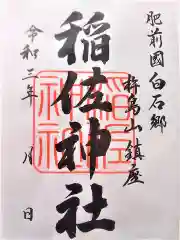 肥前國白石郷
杵島山鎮座
稲佐神社
令和三年 月 日